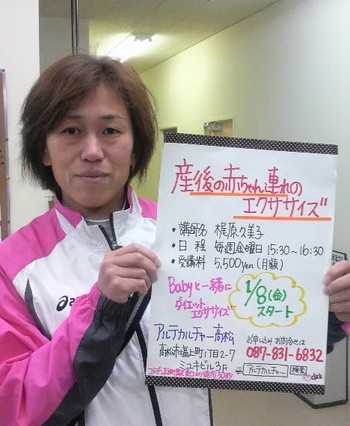 産後の赤ちゃん連れの
エクササイズ
・講師名 梶原久美子
・日程 毎週金曜日 15:30~16:30
・受講料 5,500yen(月額)
Babyと一緒に
ダイエット
エクササイズ
1/8(金)
スタート
アルテカルチャー高松
高松市塩上町1丁目2-7
ミユキビル3F
お申し込みお問合せは
087-831-6832
アルテカルチャー 検索
asics